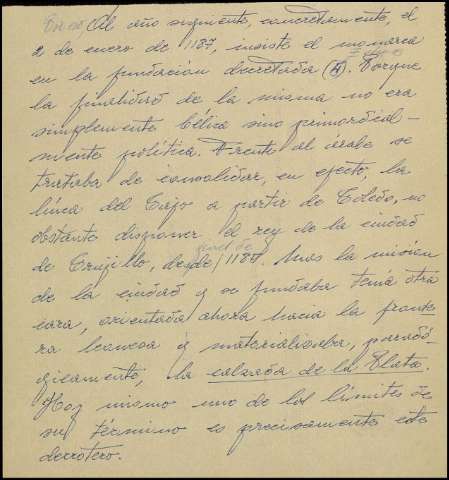 Al año siguiente, concretamente, el
2 de enero de 1187, insiste el monarca
en la fundación decretada (4). Porque
la finalidad de la misma no era
simplemente bélica sino primordial-
mente política. Frente al árabe se
trataba de consolidar, en efecto, la
línea del Tajo a partir de Toledo, no
obstante disponer el rey de la ciudad
de Trujillo, desde 1186. Mas la misión
de la ciudad q se fundaba tenía otra
cara, orientada ahora hacia la fronte
ra leonesa y materializaba, paradó-
gicamente, la calzada de la Plata.
Hoy mismo uno de los límites de
su término es precisamente este
derrotero.